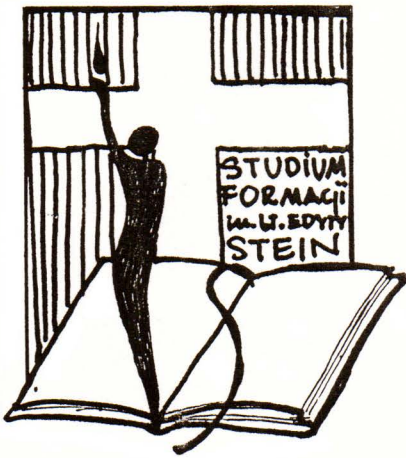 STUDIUM
FORMACJI
im. św. EDYTY
STEIN